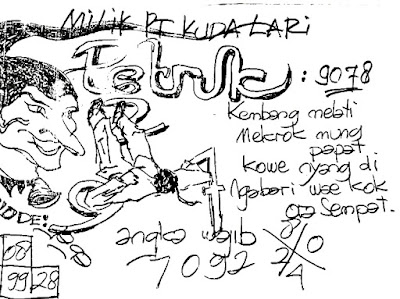 MILIK PT KUDA LARI
: 9078
Kembang melati
Mekrok mung
papat
kowe nyang di
Ngabari wae kok
ga Sempat.
angka wajib
7092
8/0
2/4
08
99 28